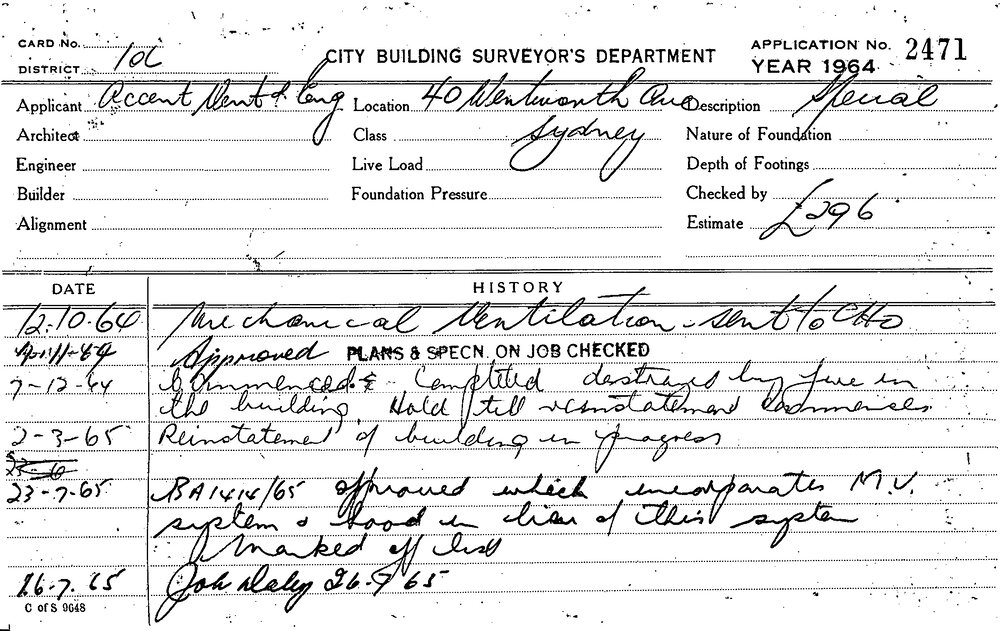 CARD No. CITY BUILDING SURVEYOR'S DEPARTMENT APPLICATION No. 2471
DISTRICT YEAR 1964
Applicant Accent Vent & Eng Location 40 Wentworth Ave Description Special
Architect Class Sydney Nature of Foundation
Engineer Live Load Depth of Footings
Builder Foundation Pressure Checked by
Alignment Estimate £296
DATE HISTORY
12.10.64 Mechanical Ventilation - sent to CHO
Approved PLANS & SPECN. ON JOB CHECKED
7-12-64 Commenced & Completed destroyed by fire in
the building. Hold till reinstatement commences
2-3-65 Reinstatement of building in progress
23-7-65 BA1414/65 approved which incorporates M.V.
system & hood in lieu of this system
Marked off list
26.7.65 Job 26-7 65
C of S 9648